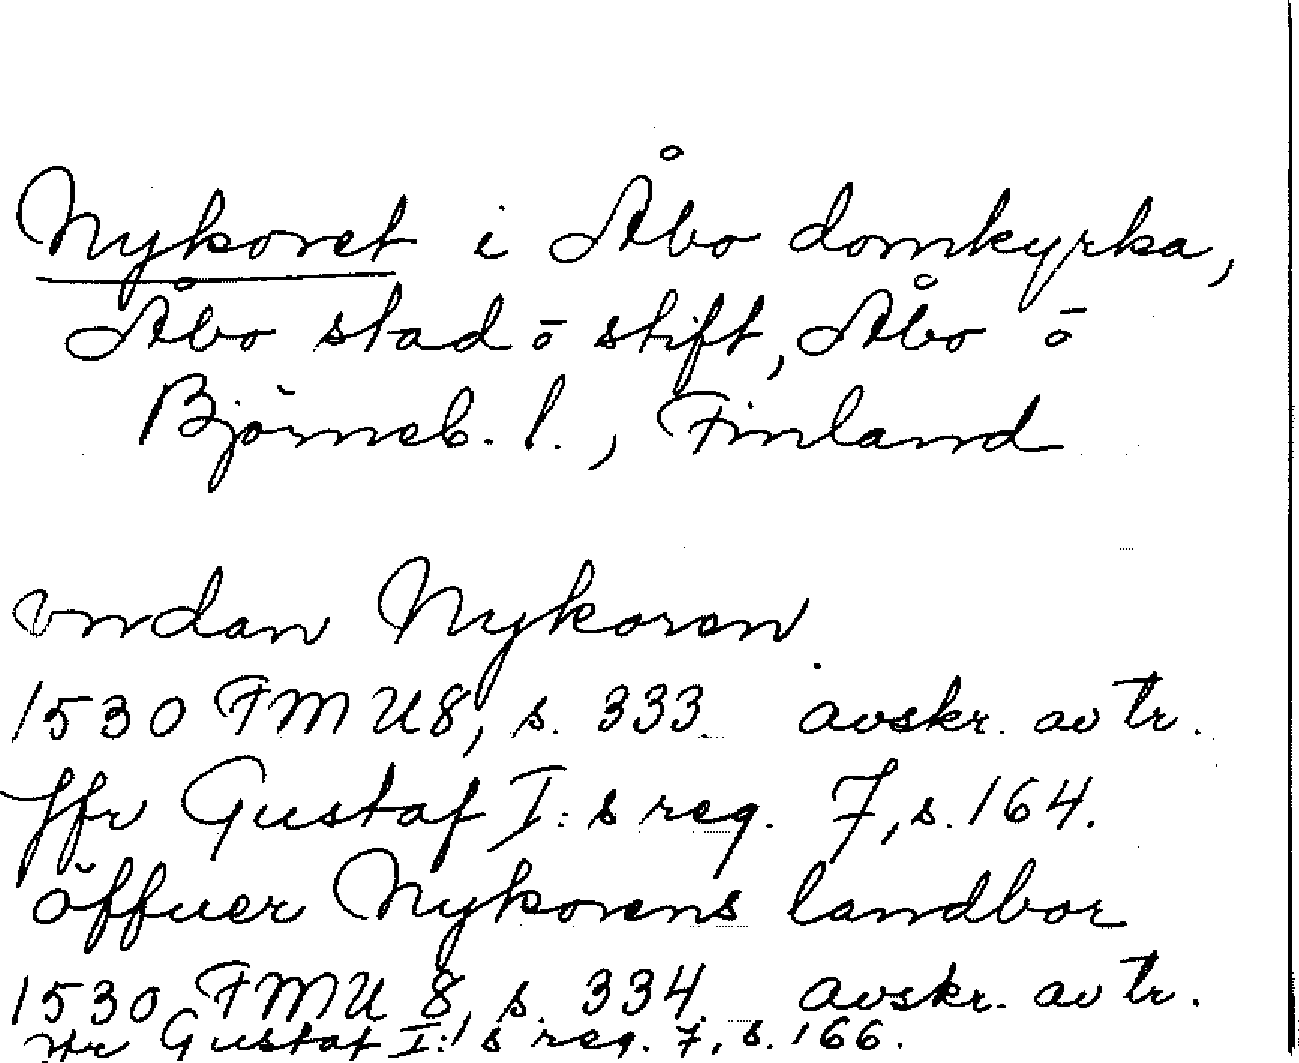 Nykoret i Åbo domkyrka,
Åbo stad o stift, Åbo o
Björneb. l., Finland
vndan Nykoren
1530 FMU 8, s. 333. avskr. av tr.
Jfr Gustaf I:s reg. 7, s. 164.
öffuer Nykorens landbor
1530 FMU 8, s. 334. avskr. av tr.
Jfr Gustaf I:s reg. 7, s. 166.